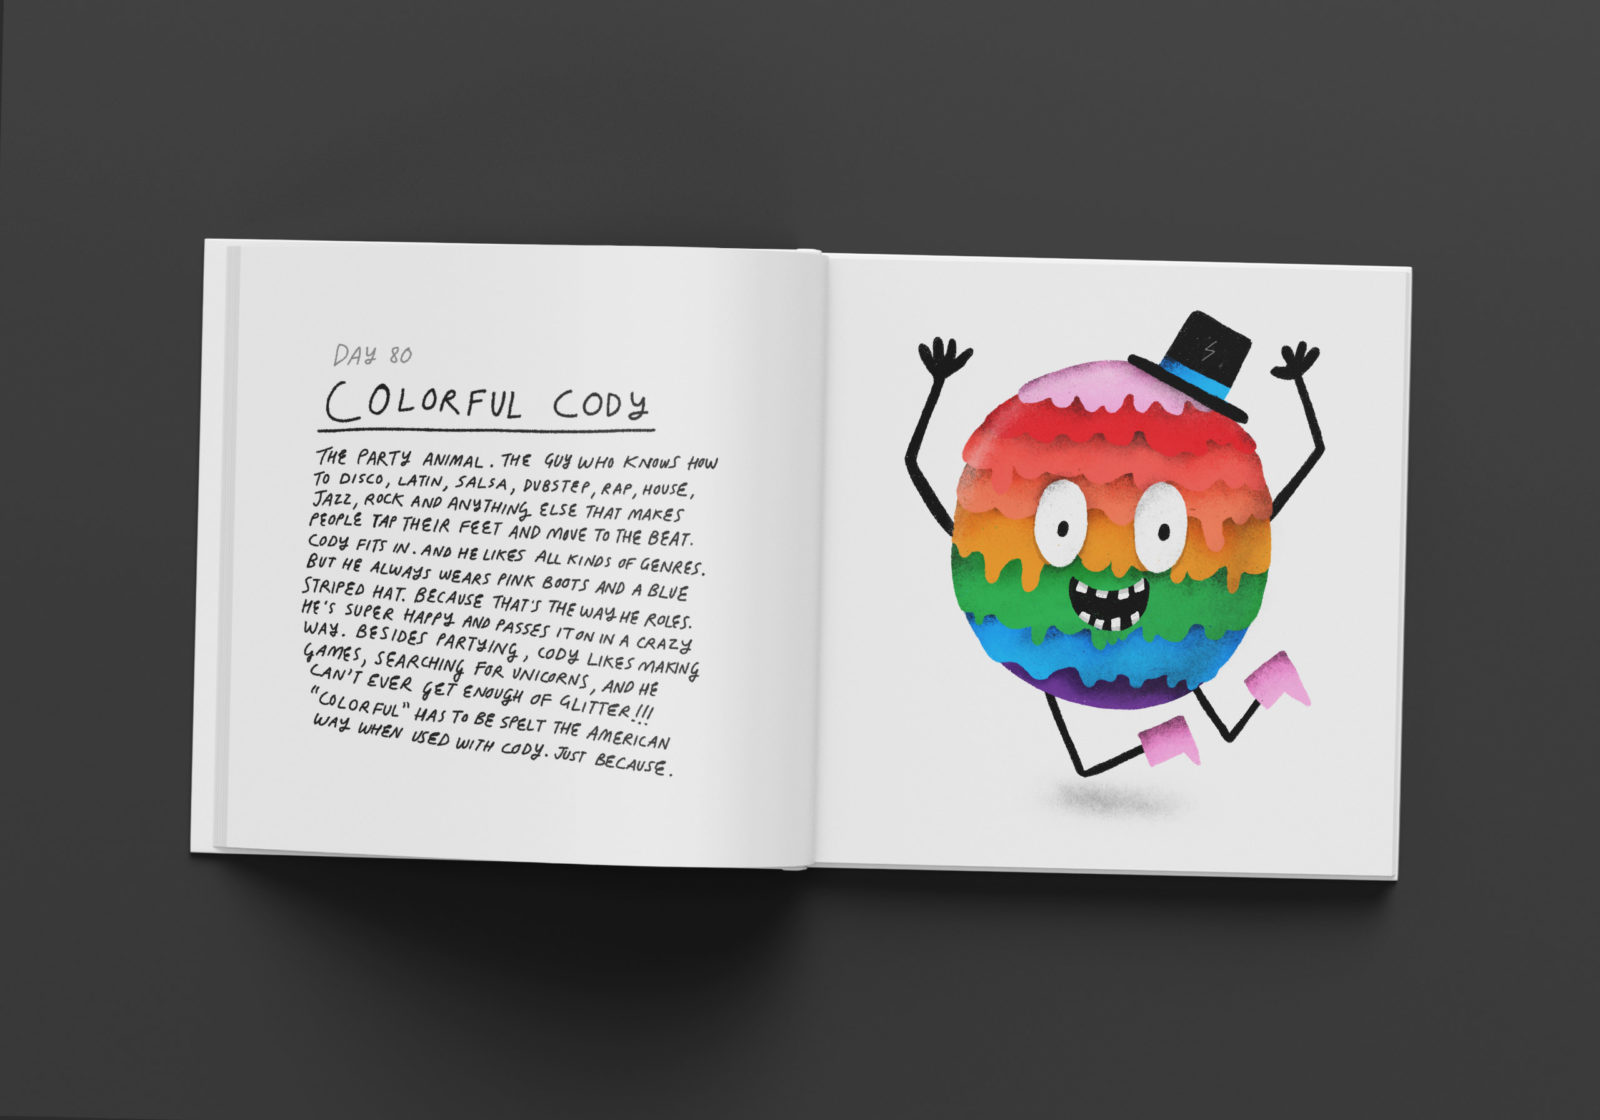 DAY 80
COLORFUL CODY
THE PARTY ANIMAL. THE GUY WHO KNOWS HOW
TO DISCO, LATIN, SALSA, DUBSTEP, RAP, HOUSE,
JAZZ, ROCK AND ANYTHING ELSE THAT MAKES
PEOPLE TAP THEIR FEET AND MOVE TO THE BEAT.
CODY FITS IN. AND HE LIKES ALL KINDS OF GENRES.
BUT HE ALWAYS WEARS PINK BOOTS AND A BLUE
STRIPED HAT. BECAUSE THAT'S THE WAY HE ROLES.
HE'S SUPER HAPPY AND PASSES IT ON IN A CRAZY
WAY. BESIDES PARTYING, CODY LIKES MAKING
GAMES, SEARCHING FOR UNICORNS, AND HE
CAN'T EVER GET ENOUGH OF GLITTER!!!
"COLORFUL" HAS TO BE SPELT THE AMERICAN
WAY WHEN USED WITH CODY. JUST BECAUSE.